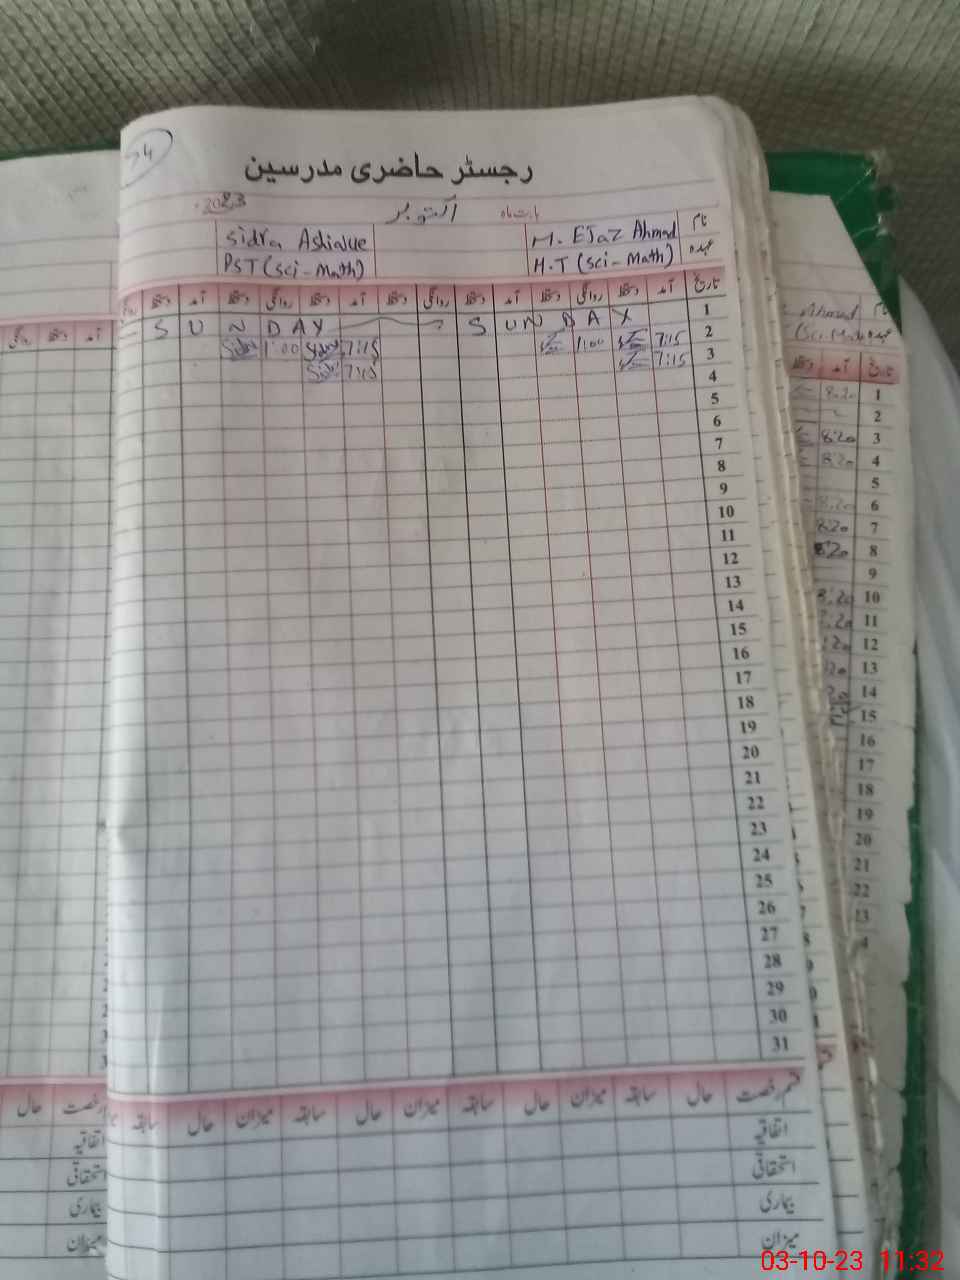 54
رجسٹر حاضری مدرسین
بابت ماہ اکتوبر 2023
نام M. EJaz Ahmad Sidra Ashiaue
عہدہ H.T (Sci-Math) PST (Sci-Math)
تاریخ آمد دستخط روانگی دستخط آمد دستخط روانگی دستخط آمد دستخط روانگی دستخط آمد دستخط روانگی
1 S U N D A Y S U N D A Y
2 7:15 1:00 7:15 Sidra 1:00 Sidra
3 7:15 7:15 Sidra
4
5
6
7
8
9
10
11
12
13
14
15
16
17
18
19
20
21
22
23
24
25
26
27
28
29
30
31
قسم رخصت حال سابقہ میزان حال سابقہ میزان حال سابقہ میزان حال سابقہ
اتفاقیہ
استحقاقی
بیماری
میزان
نام Ahmad
عہدہ (Sci-Math
تاریخ آمد
1 8:20
2
3 8:20
4 8:20
5
6 8:20
7 8:20
8 8:20
9
10 8:20
11 :20
12 :20
13 20
14 20
15
16
17
18
19
20
21
22
23
روانگی دستخط آمد
رخصت حال
اتفاقیہ
استحقاقی
بیماری
میزان
03-10-23 11:32